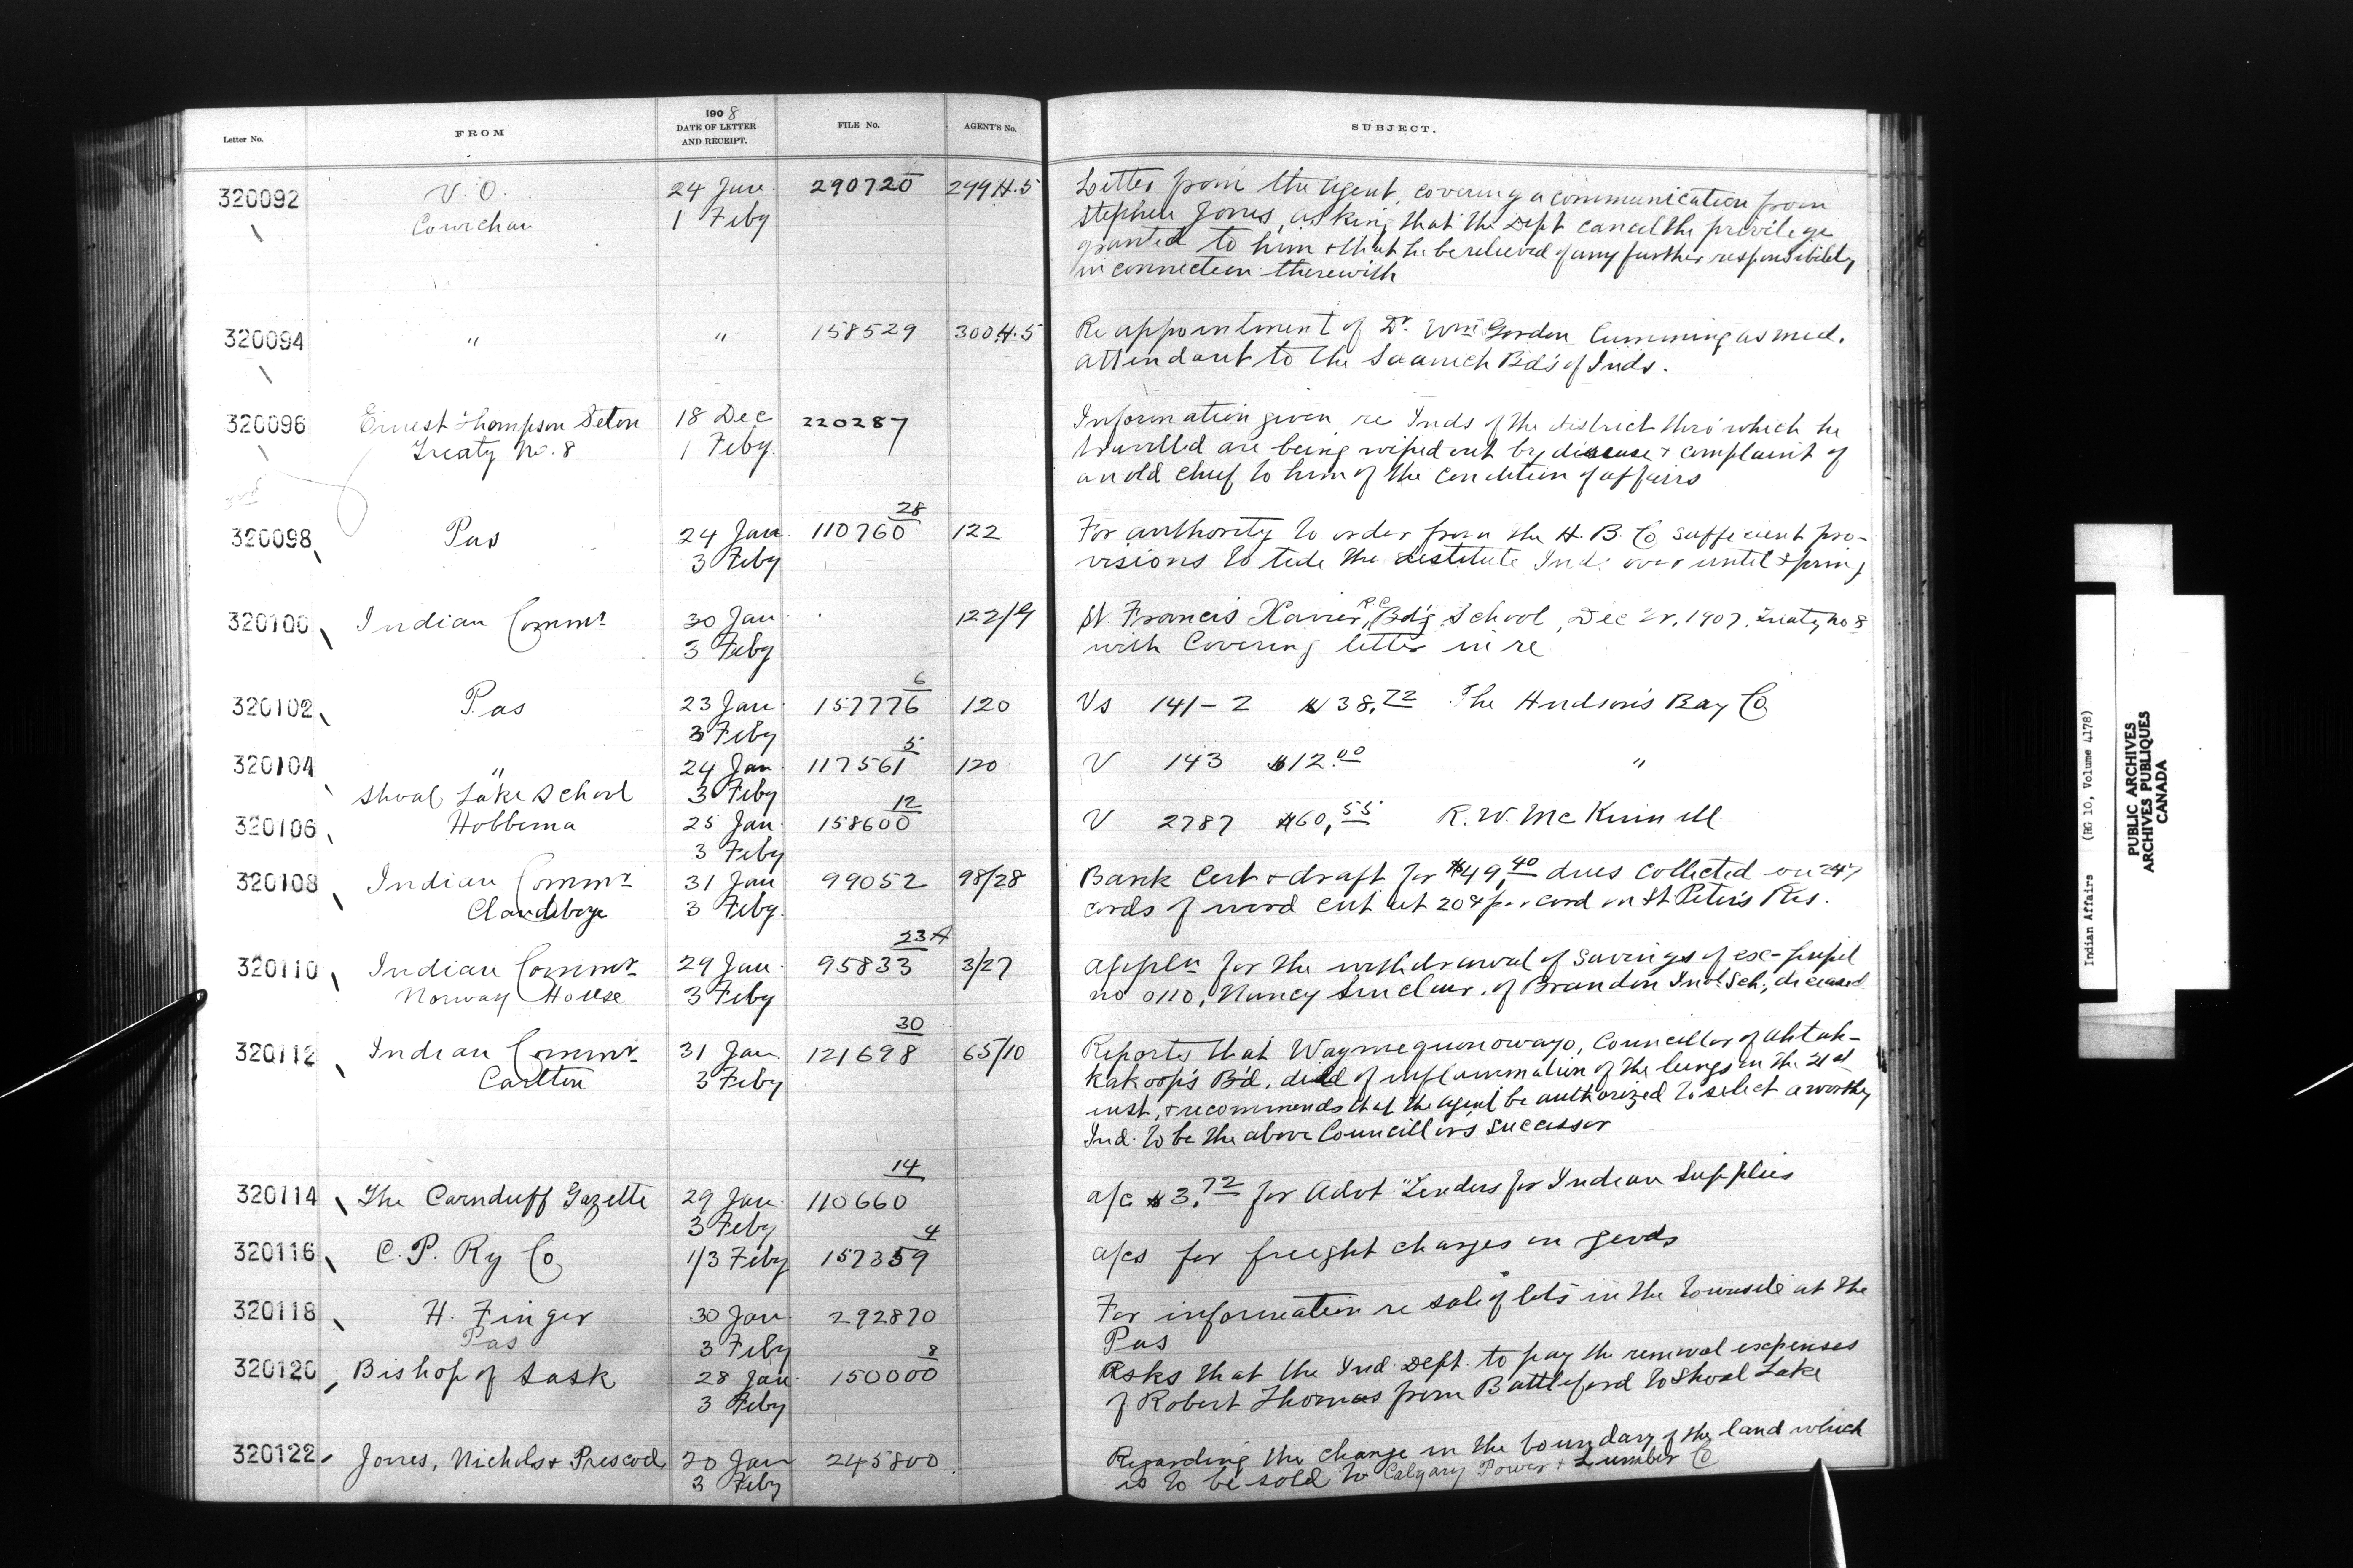 Letter No. FROM 1908 DATE OF LETTER AND RECEIPT. FILE No. AGENT'S No. SUBJECT.
320092 V. O. 24 Jan. 290720 299 H.5 Letter from the Agent, covering a communication from
Cowichan 1 Feby Stephen Jones, asking that the Dept cancel the privilege
granted to him & that he be relieved of any further responsibility
in connection therewith
320094 " " 158529 300 H.5 Re appointment of Dr. Wm Gordon Cumming as med.
attendant to the Saanich Bds of Inds.
320096 Ernest Thompson Seton 18 Dec 220287 Information given re Inds of the district thro' which he
Treaty No. 8 1 Feby. travelled are being wiped out by disease & complaint of
an old chief to him of the condition of affairs
320098 Pas 24 Jan. 110760 28 122 For authority to order from the H. B. Co sufficient pro-
3 Feby visions to tide the destitute Inds over until spring
320100 Indian Commr 30 Jan. 122/9 St Francis Xavier, R C Bd'g School, Dec 1907, Treaty No 8
3 Feby with Covering letter in re
320102 Pas 23 Jan. 157776 6 120 Vs 141-2 $38.72 The Hudson's Bay Co
3 Feby
320104 " 24 Jan 117561 5 120 V 143 $12.00 "
Shoal Lake School 3 Feby
320106 Hobbema 25 Jan. 158600 12 V 2787 $60.55 R. W. McKinnell
3 Feby
320108 Indian Commr 31 Jan 99052 98/28 Bank Cert & draft for $49.40 dues collected on 247
Clandeboye 3 Feby. cords of wood cut at 20¢ per cord on St Peter's Res.
320110 Indian Commr 29 Jan. 95833 23A 3/27 Appln for the withdrawal of savings of ex-pupil
Norway House 3 Feby no 0110, Nancy Sinclair, of Brandon Indl Sch., deceased
320112 Indian Commr 31 Jan. 121698 30 65/10 Reports that Councillor of Ahtah-
Carlton 3 Feby kakoop's Bd. died of inflammation of the lungs on the 21st
inst, & recommends that the Agent be authorized to select a worthy
Ind. to be the above Councillor's successor
320114 The Carnduff Gazette 29 Jan. 110660 14 a/c $3.72 for Advt "Tenders for Indian Supplies
3 Feby
320116 C. P. Ry Co 1/3 Feby 157359 4 a/cs for freight charges on goods
320118 H. Finger 30 Jan. 292870 For information re sale of lots in the townsite at the
Pas 3 Feby Pas
320120 Bishop of Sask 28 Jan. 150000 8 Asks that the Ind. Dept. to pay the removal expenses
3 Feby of Robert Thomas from Battleford to Shoal Lake
320122 Jones, Nichols & Prescod 20 Jan 245800 Regarding the change in the boundary of the land which
3 Feby is to be sold to Calgary Power & Lumber Co
Indian Affairs (RG 10, Volume 4178)
PUBLIC ARCHIVES
ARCHIVES PUBLIQUES
CANADA